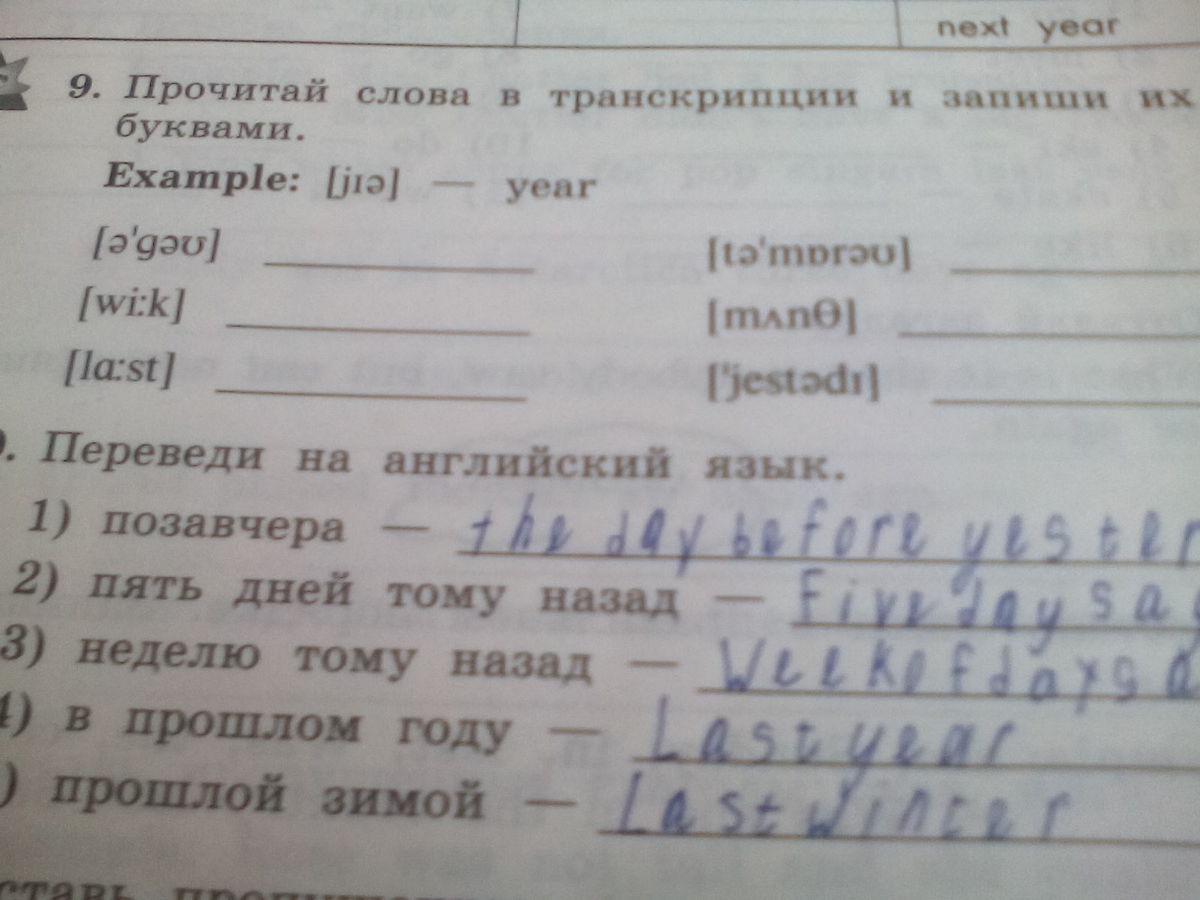 next year
9. Прочитай слова в транскрипции и запиши их
буквами.
Example: [jɪə] — year
[ə'gəʊ] ____ [tə'mɒrəʊ] ____
[wi:k] ____ [mʌnθ] ____
[lɑ:st] ____ ['jestədɪ] ____
. Переведи на английский язык.
1) позавчера — the day before yester
2) пять дней тому назад — Five day s a
3) неделю тому назад — Week of days a
4) в прошлом году — Last year
) прошлой зимой — Last winter